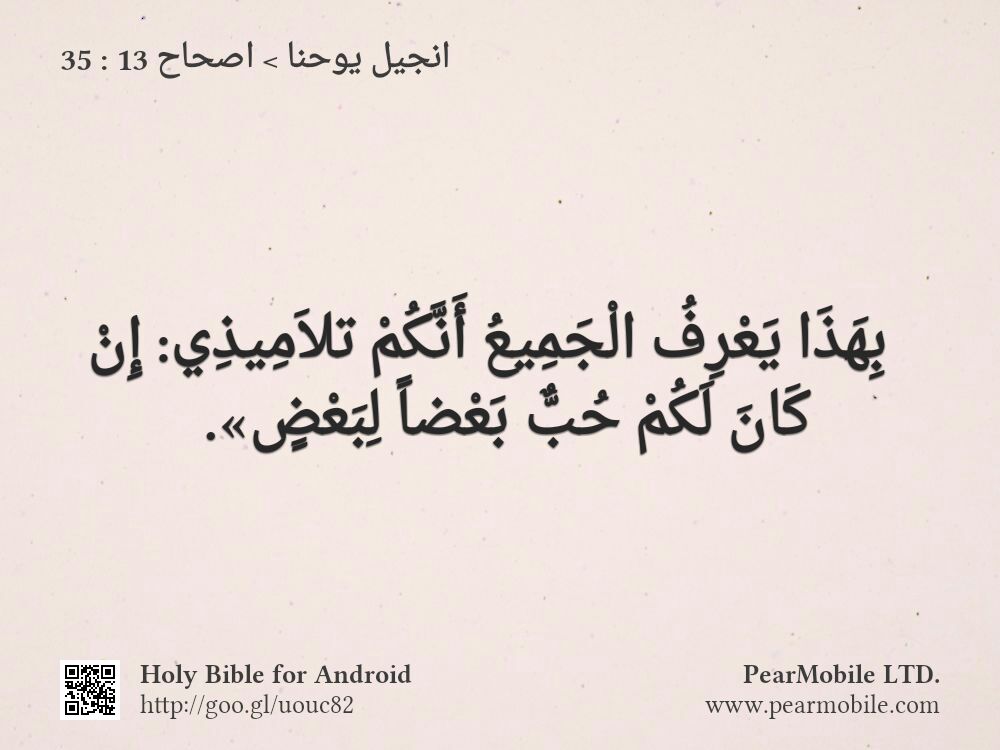 انجيل يوحنا > اصحاح 13 : 35
بِهَذَا يَعْرِفُ الْجَمِيعُ أَنَّكُمْ تلاَمِيذِي: إِنْ
كَانَ لَكُمْ حُبٌّ بَعْضاً لِبَعْضٍ».
Holy Bible for Android
http://goo.gl/uouc82
PearMobile LTD.
www.pearmobile.com